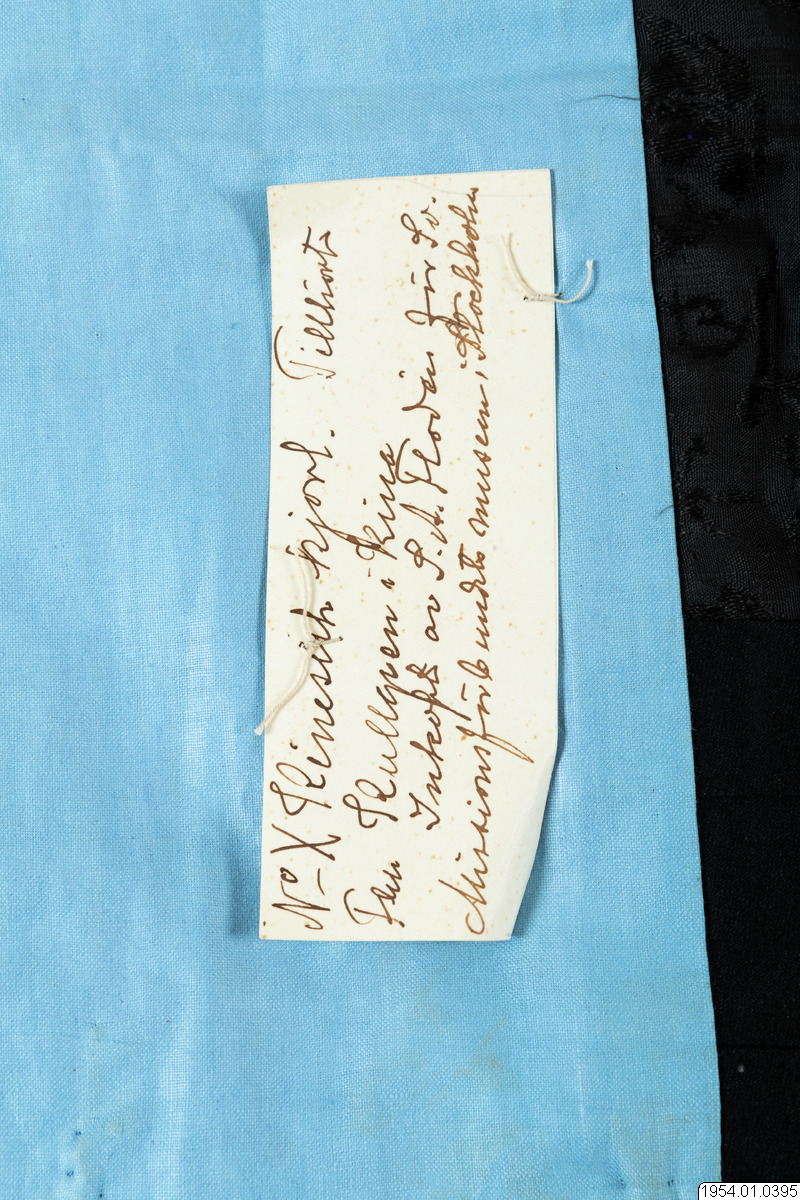 No X Kinesisk kjorl. Tillhört
Fru Kullgren i Kina
Inköpt av S. A. Flodén för Sv.
Missionsförbundets museum i Stockholm
1954.01.0395